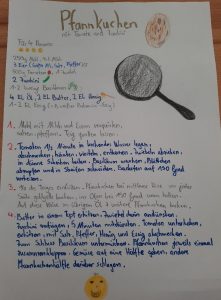 Pfannkuchen
mit Tomate und Zucchini
Für 4 Personen
250g Mehl, ½ l Milch
3 Eier (Größe M), Salz, Pfeffer
500g Tomaten, 1 Zwiebel
2 Zucchini
1-2 Zweige Basilikum
4 EL Öl, 2 EL Butter, 2 EL Honig
1-2 EL Essig
1. Mehl mit Milch und Eiern verquirlen,
salzen, pfeffern. Teig quellen lassen.
2. Tomaten ½ Minute in kochendes Wasser legen,
abschrecken, häuten, vierteln, entkernen. Zwiebeln abziehen,
in dünne Scheiben hobeln. Basilikum waschen, Blättchen
abzupfen und in Streifen schneiden. Backofen auf 150 Grad
vorheizen.
3. Öl in Pfanne erhitzen. Pfannkuchen bei mittlerer Hitze von jeder
Seite goldgelb backen, im Ofen bei 150 Grad warm halten.
Auf diese Weise in übrigem Öl 3 weitere Pfannkuchen backen.
4. Butter in einem Topf erhitzen. Zwiebel darin andünsten.
Zucchini zufügen, 5 Minuten mitdünsten. Tomaten unterheben,
erhitzen, mit Salz, Pfeffer, Honig und Essig abschmecken.
Zum Schluss Basilikum untermischen. Pfannkuchen jeweils einmal
zusammenklappen. Gemüse auf eine Hälfte geben, andere
Pfannkuchenhälfte darüber schlagen.